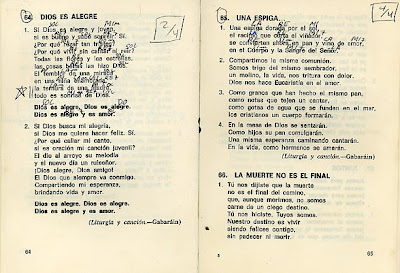 64. DIOS ES ALEGRE
2/4
1. Si Dios es alegre y joven,
si es bueno y sabe sonreír. Sí.
¿Por qué rezar tan tristes?
¿Por qué vivir sin cantar ni reír?
Todas las flores y las estrellas,
las cosas bellas las hizo Dios.
El temblor de una mirada
en una niña enamorada,
la ternura de una madre,
todo es sonrisa de Dios.
Dios es alegre. Dios es alegre.
Dios es alegre y es amor.
2. Si Dios busca mi alegría,
si Dios me quiere hacer feliz. Sí.
¿Por qué callar mi canto,
si es oración mi canción juvenil?
El día al arroyo su melodía
y el nuevo día un ruiseñor.
¡Dios alegre, Dios amigo!
El Dios que siempre va conmigo.
Compartiendo mi esperanza,
brindando vida y amor.
Dios es alegre. Dios es alegre.
Dios es alegre y es amor.
(Liturgia y canción.—Gabaráin)
64
65. UNA ESPIGA
4/4
1. Una espiga dorada por el sol,
el racimo que corta el viñador,
se convierten ahora en pan y vino de amor,
en el Cuerpo y la Sangre del Señor.
2. Compartimos la misma comunión.
Somos trigo del mismo sembrador,
un molino, la vida, nos tritura con dolor.
Dios nos hace Eucaristía en el amor.
3. Como granos que han hecho el mismo pan,
como notas que tejen un cantar,
como gotas de agua que se funden en el mar,
los cristianos un cuerpo formarán.
4. En la mesa de Dios se sentarán.
Como hijos su pan comulgarán.
Una misma esperanza caminando cantarán.
En la vida, como hermanos se amarán.
(Liturgia y canción.—Gabaráin)
66. LA MUERTE NO ES EL FINAL
1. Tú nos dijiste que la muerte
no es el final del camino,
que, aunque morimos, no somos
carne de un ciego destino.
Tú nos hiciste. Tuyos somos.
Nuestro destino es vivir
siendo felices contigo,
sin padecer ni morir.
65